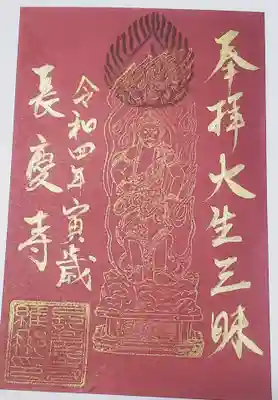 奉拝火生三昧
令和四年寅歳
長慶寺